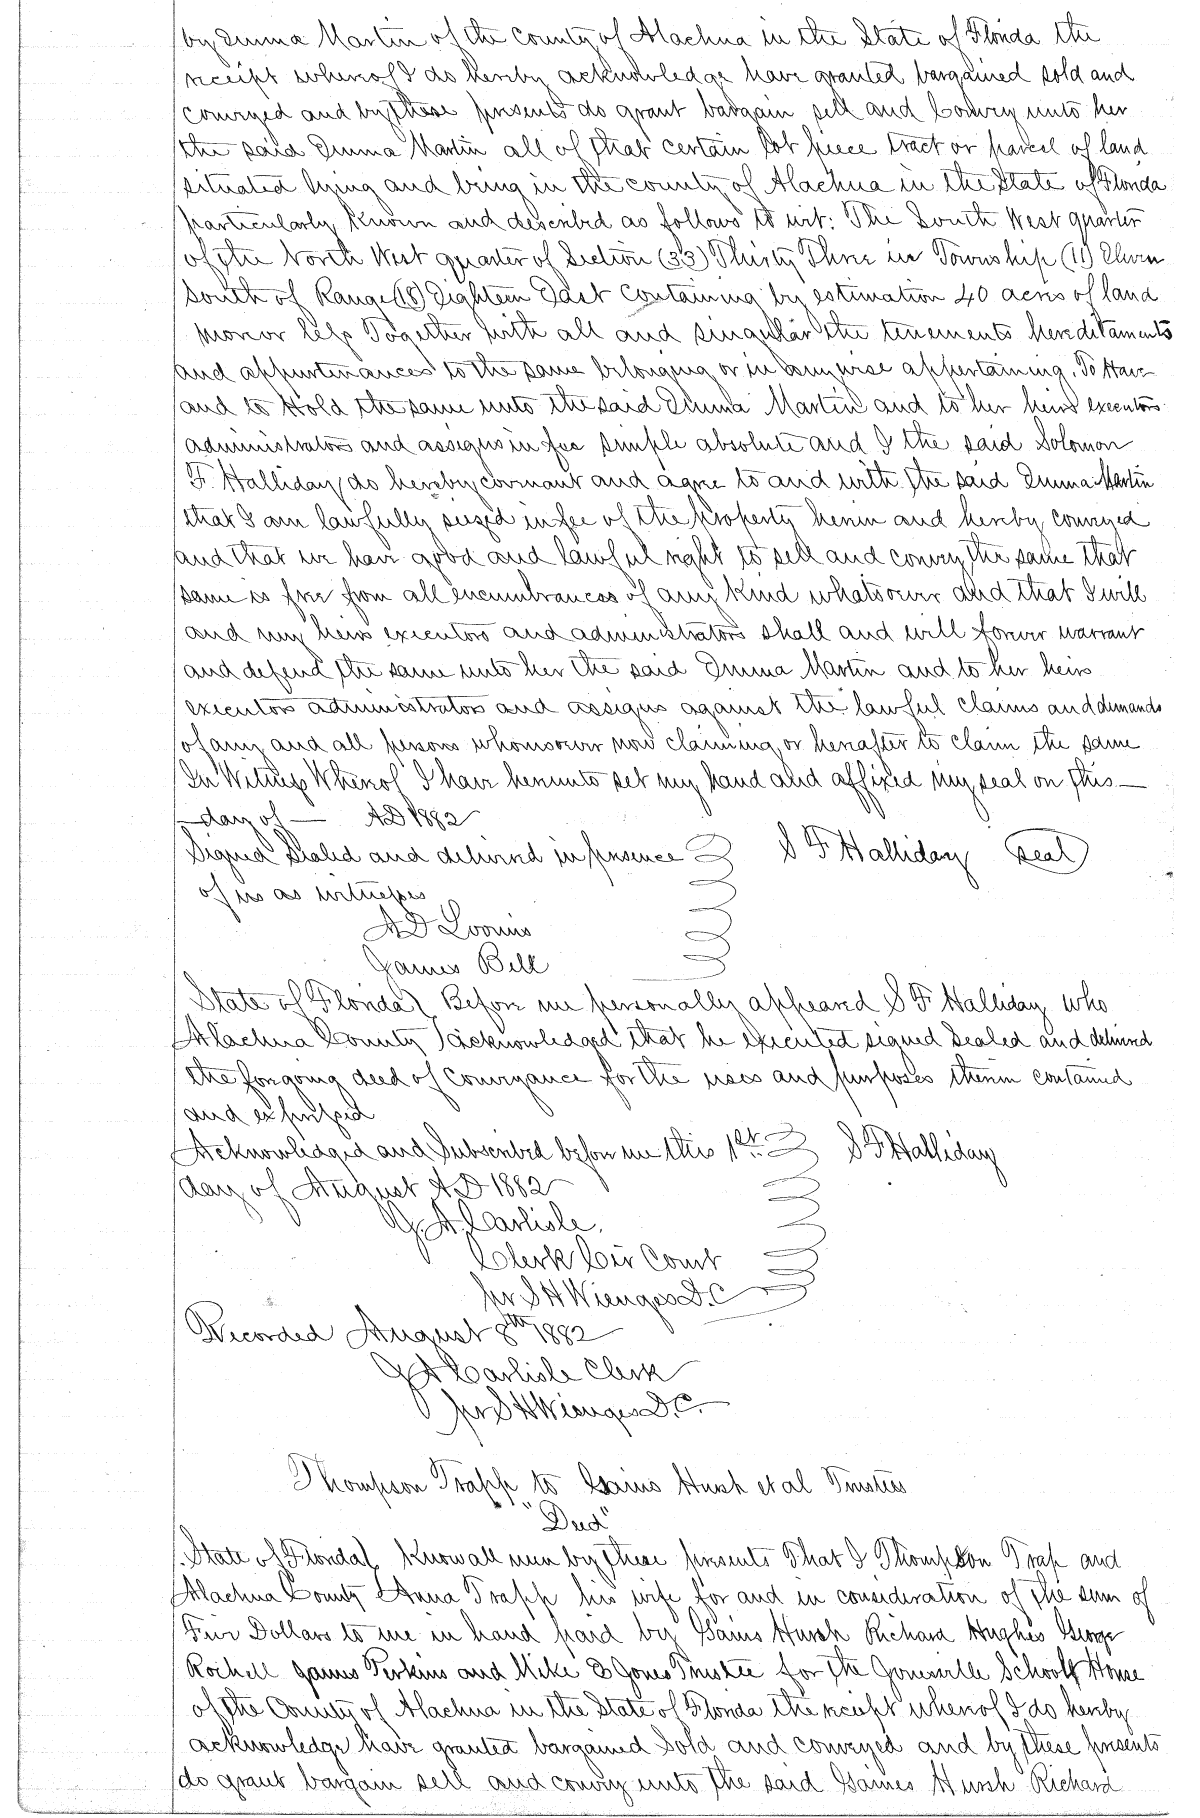 by Emma Martin of the County of Alachua in the State of Florida the
receipt whereof I do hereby acknowledge have granted bargained sold and
conveyed and by these presents do grant bargain sell and Convey unto her
the said Emma Martin all of that certain lot piece tract or parcel of land
situated lying and being in the county of Alachua in the State of Florida
particularly known and described as follows to wit: The South West quarter
of the North West quarter of Section (33) Thirty Three in Township (11) Eleven
South of Range (18) Eighteen East Containing by estimation 40 acres of land
more or less Together with all and singular the tenements hereditaments
and appurtenances to the same belonging or in anywise appertaining. To Have
and to Hold the same unto the said Emma Martin and to her heirs executors
administrators and assigns in fee simple absolute and I the said Solomon
F. Halliday do hereby covenant and agree to and with the said Emma Martin
that I am lawfully seized in fee of the property herein and hereby conveyed
and that we have good and lawful right to sell and convey the same that
same is free from all encumbrances of any kind whatsoever and that I will
and my heirs executors and administrators shall and will forever warrant
and defend the same unto her the said Emma Martin and to her heirs
executors administrators and assigns against the lawful claims and demands
of any and all persons whomsoever now claiming or hereafter to claim the same
In Witness Whereof I have hereunto set my hand and affixed my seal on this —
— day of — AD 1882
Signed Sealed and delivered in presence S F Halliday seal
of us as witnesses
A D Loomis
James Bell
State of Florida Before me personally appeared S F Halliday who
Alachua County acknowledged that he executed signed sealed and delivered
the foregoing deed of conveyance for the uses and purposes therein contained
and expressed
Acknowledged and Subscribed before me this 1st S F Halliday
day of August AD 1882
J. A. Carlisle,
Clerk Cir Court
per S H Wienges D.C
Recorded August 8th 1882
J A Carlisle Clerk
per S H Wienges D.C.
Thompson Trapp to Gains Hursh et al Trustees
"Deed"
State of Florida Know all men by these presents That I Thompson Trap and
Alachua County Anna Trapp his wife for and in consideration of the sum of
Five Dollars to me in hand paid by Gains Hursh Richard Hughes George
Rochell James Perkins and Mike E Jones Trustee for the Jonesville School House
of the County of Alachua in the State of Florida the receipt whereof I do hereby
acknowledge have granted bargained Sold and conveyed and by these presents
do grant bargain sell and convey unto the said Gaines Hursh Richard